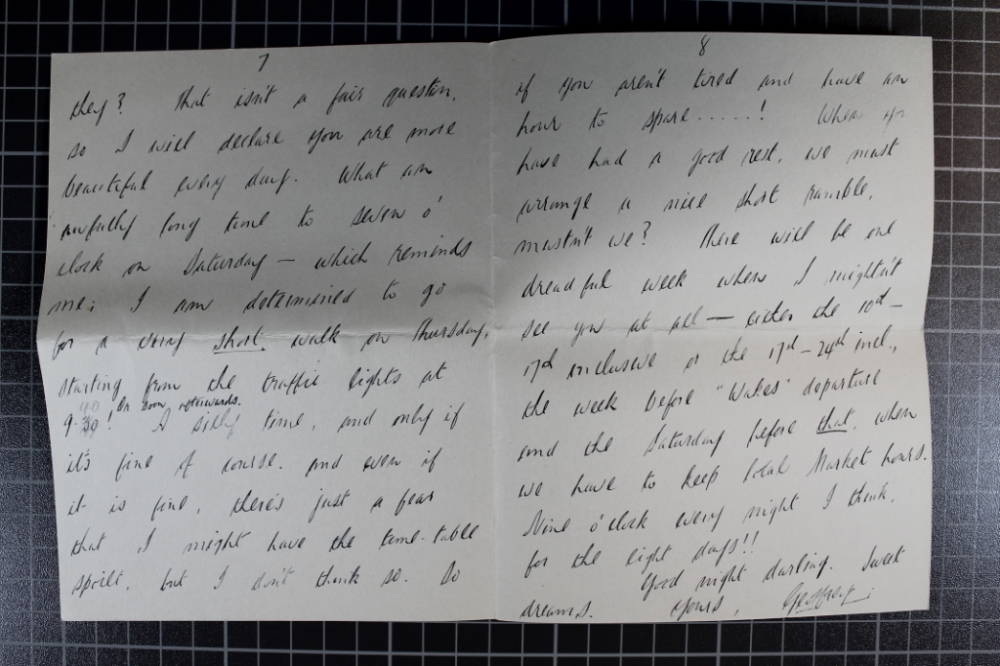 7
they? That isn't a fair question,
so I will declare you are more
beautiful every day. What an
awfully long time to seven o'
clock on Saturday — which reminds
me; I am determined to go
for a very short walk on Thursday,
starting from the traffic lights at
or soon afterwards.
9.30! A silly time, and only if
it's fine of course. And even if
it is fine, there's just a fear
that I might have the time-table
spoilt, but I don't think so. So
8
if you aren't tired and have an
hour to spare......! When you
have had a good rest, we must
arrange a nice short ramble,
mustn't we? There will be one
dreadful week when I mightn't
see you at all — either the 10th —
17th inclusive or the 17th — 24th incl.,
the week before "Wakes" departure
and the Saturday before that, when
we have to keep Market hours.
Nine o'clock every night I think,
for the eight days!!
Good night darling. Sweet
dreams. Yours, Geoffrey.